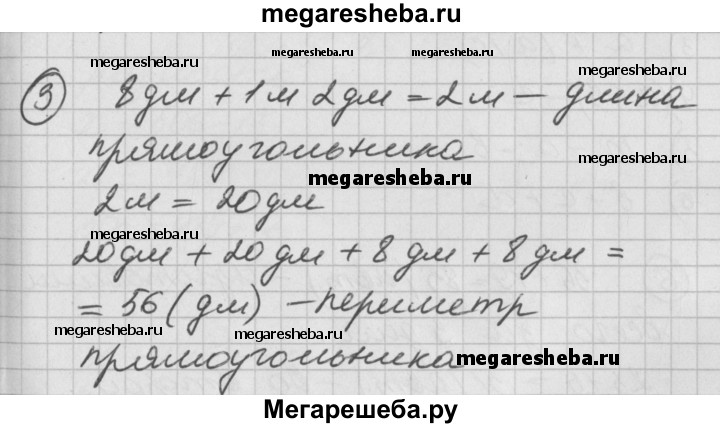 megaresheba.ru
megaresheba.ru megaresheba.ru megaresheba.ru
③ 8 дм + 1 м 2 дм = 2 м — длина
прямоугольника
megaresheba.ru megaresheba.ru
2 м = 20 дм
megaresheba.ru megaresheba.ru
20 дм + 20 дм + 8 дм + 8 дм =
= 56 (дм) — периметр
megaresheba.ru megaresheba.ru
прямоугольника
megaresheba.ru
Мегарешеба.ру